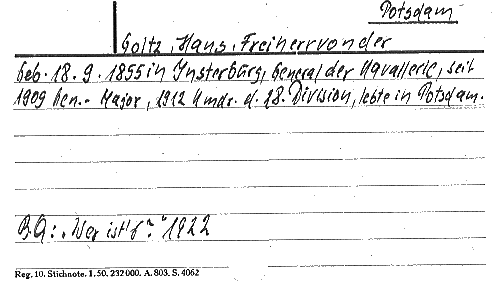 Potsdam
Goltz, Hans, Freiherr von der
Geb. 18.9.1855 in Insterburg, General der Kavallerie, seit
1909 Gen.-Major, 1912 Kmdr. d. 28. Division, lebte in Potsdam.
BQ: „Wer ist's?" 1922
Reg. 10. Stichnote. 1. 50. 232000. A. 803. S. 4062